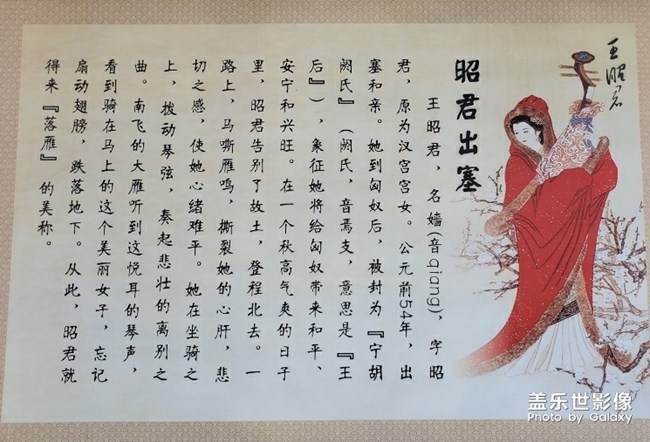 王昭君
昭君出塞
王昭君，名嫱(音qiang)，字昭
君，原为汉宫宫女。公元前54年，出
塞和亲。她到匈奴后，被封为『宁胡
阏氏』（阏氏，音焉支，意思是『王
后』），象征她将给匈奴带来和平、
安宁和兴旺。在一个秋高气爽的日子
里，昭君告别了故土，登程北去。一
路上，马嘶雁鸣，撕裂她的心肝，悲
切之感，使她心绪难平。她在坐骑之
上，拨动琴弦，奏起悲壮的离别之
曲。南飞的大雁听到这悦耳的琴声，
看到骑在马上的这个美丽女子，忘记
扇动翅膀，跌落地下。从此，昭君就
得来『落雁』的美称。
盖乐世影像
Photo by Galaxy